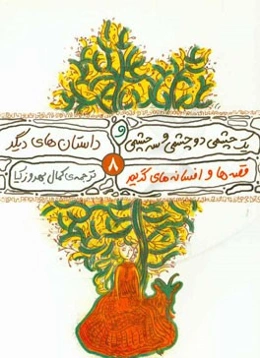 یک چشمی دو چشمی و سه چشمی
و
داستان های دیگر
قصه ها و افسانه های گریم
۸
ترجمه ی کمال بهروزکیا